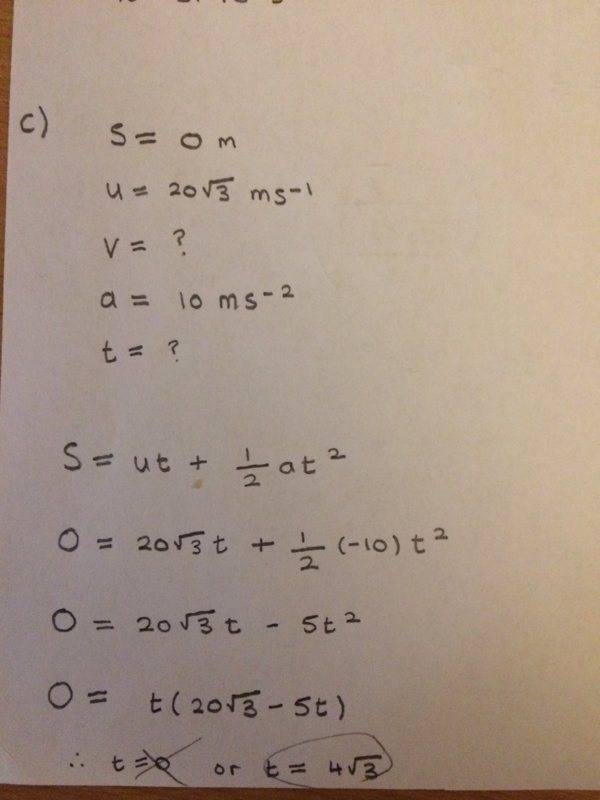 c)
S = 0 m
u = 20√3 ms-1
v = ?
a = 10 ms-2
t = ?
S = ut + 1/2 at²
0 = 20√3 t + 1/2 (-10) t²
0 = 20√3 t - 5t²
0 = t(20√3 - 5t)
∴ t = 0 or t = 4√3